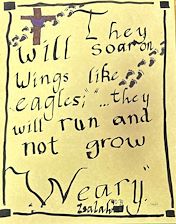 They
will soar on
Wings like
eagles; "...they
will run and
not grow
Weary."
Isaiah